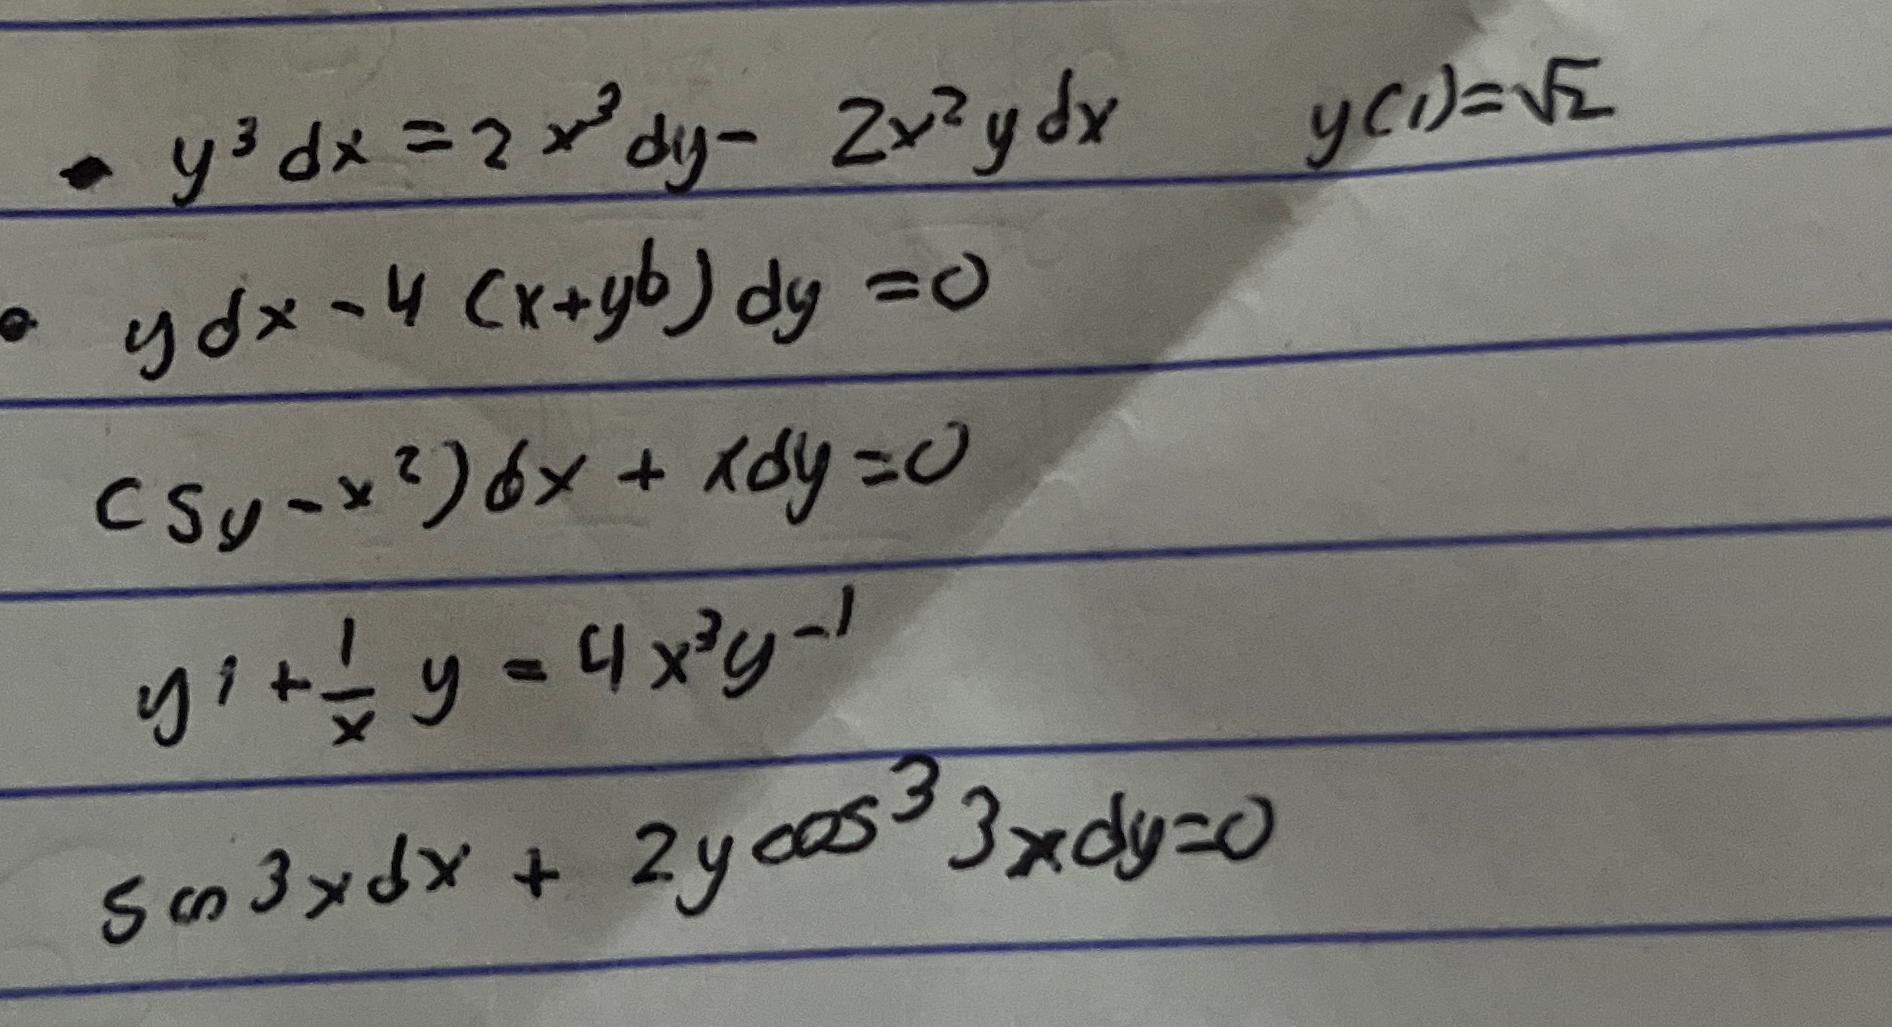 • y³dx = 2x³dy - 2x²ydx y(1)=√2
• ydx - 4(x+y⁶)dy = 0
(5y - x²)dx + xdy = 0
y' + 1/x y = 4x³y⁻¹
sen 3xdx + 2ycos³3xdy=0